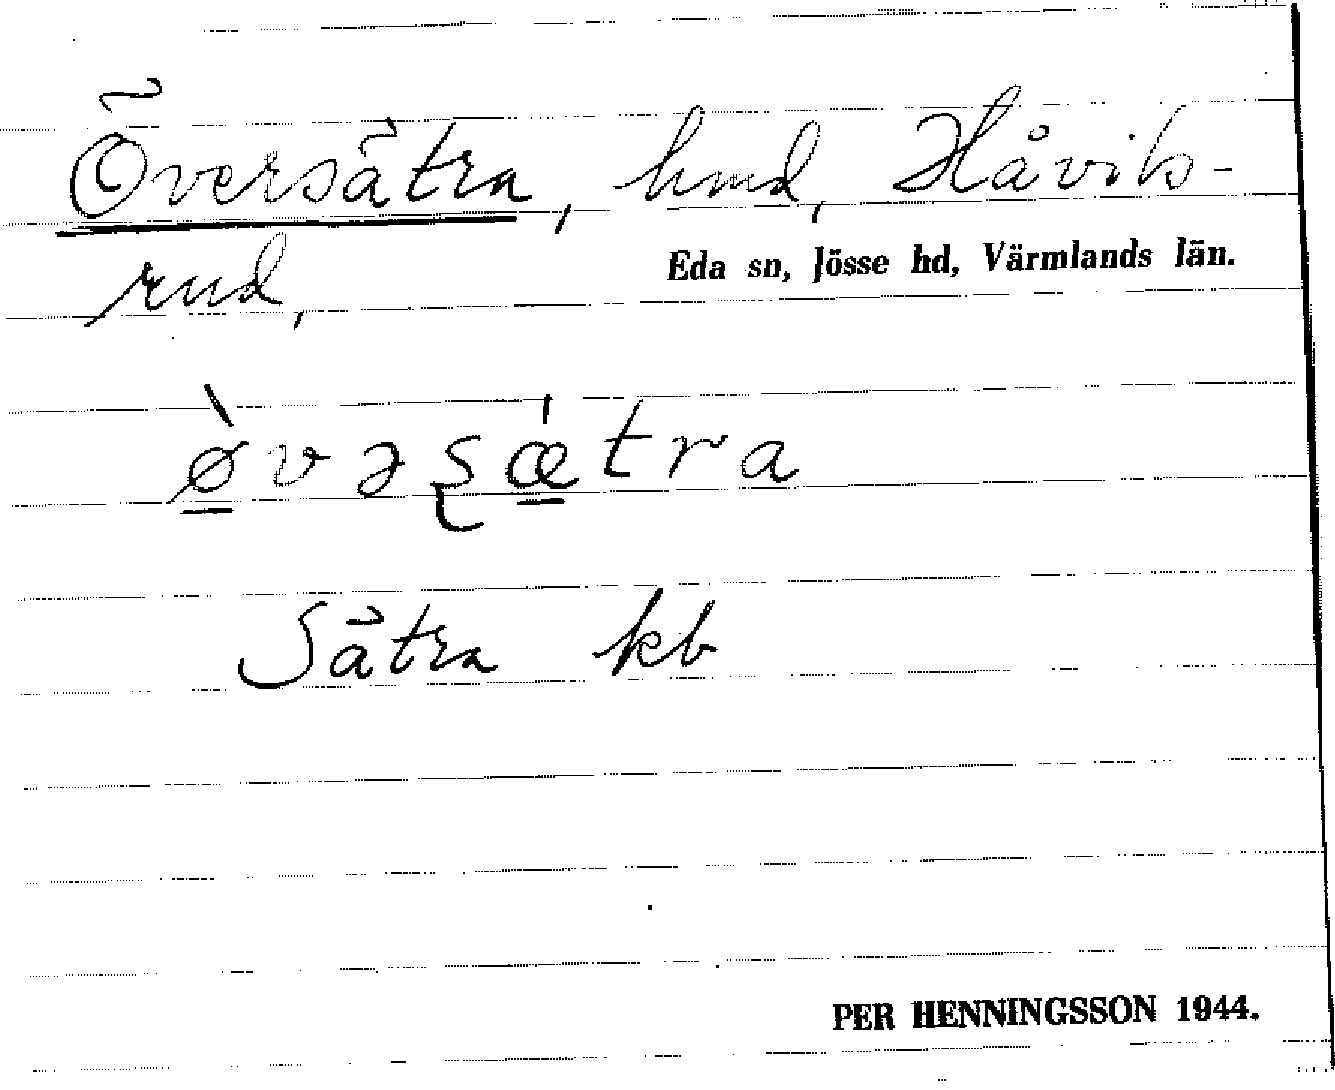 Översätra, hmd, Håviks-
rud,
Eda sn, Jösse hd, Värmlands län.
ø̲̀vəʂǽ̲tra
Sätra kb
PER HENNINGSSON 1944.